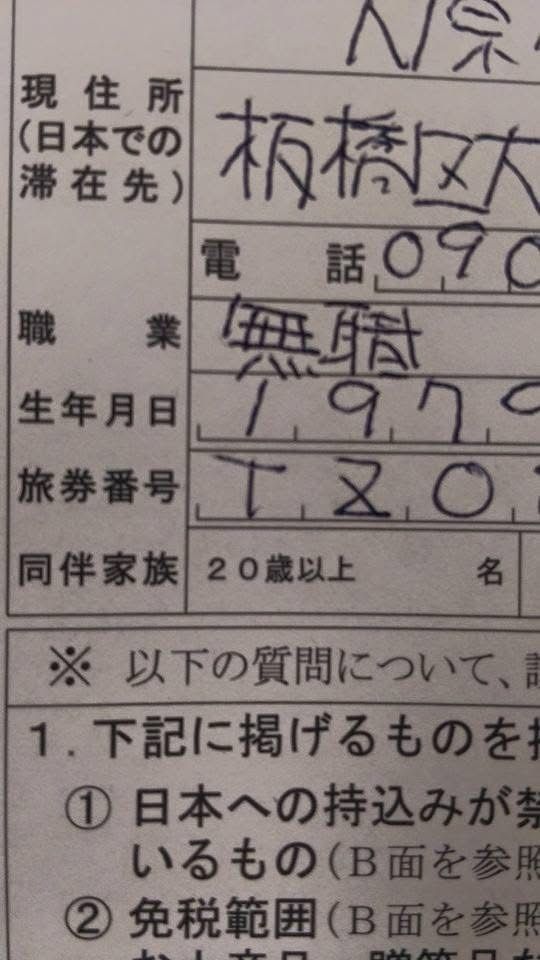 現住所
(日本での
滞在先)
板橋区大
電話 090
職業 無職
生年月日 1979
旅券番号 TZ0
同伴家族 20歳以上 名
※ 以下の質問について、
1.下記に掲げるものを
① 日本への持込みが禁
いるもの(B面を参照
② 免税範囲(B面を参照